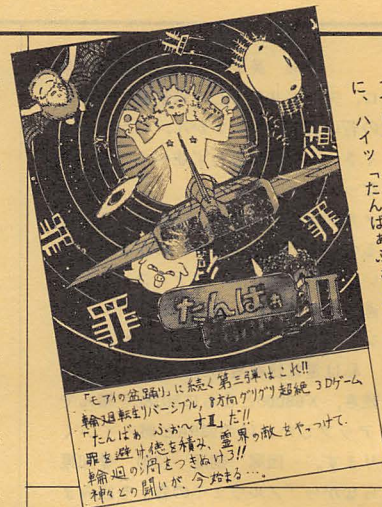 に、ハイッ「たんばぁふ
罪
徳
罪
罪
罪
たんばぁ
II
「モアイの盆踊り」に続く第三弾はこれ!!
輪廻転生リバーシブル,8方向グリグリ超絶3Dゲーム
「たんばぁ ふぉ〜すII」だ!!
罪を避け,徳を積み、霊界の敵をやっつけて、
輪廻の渦をつきぬけろ!!
神々との闘いが、今始まる…。